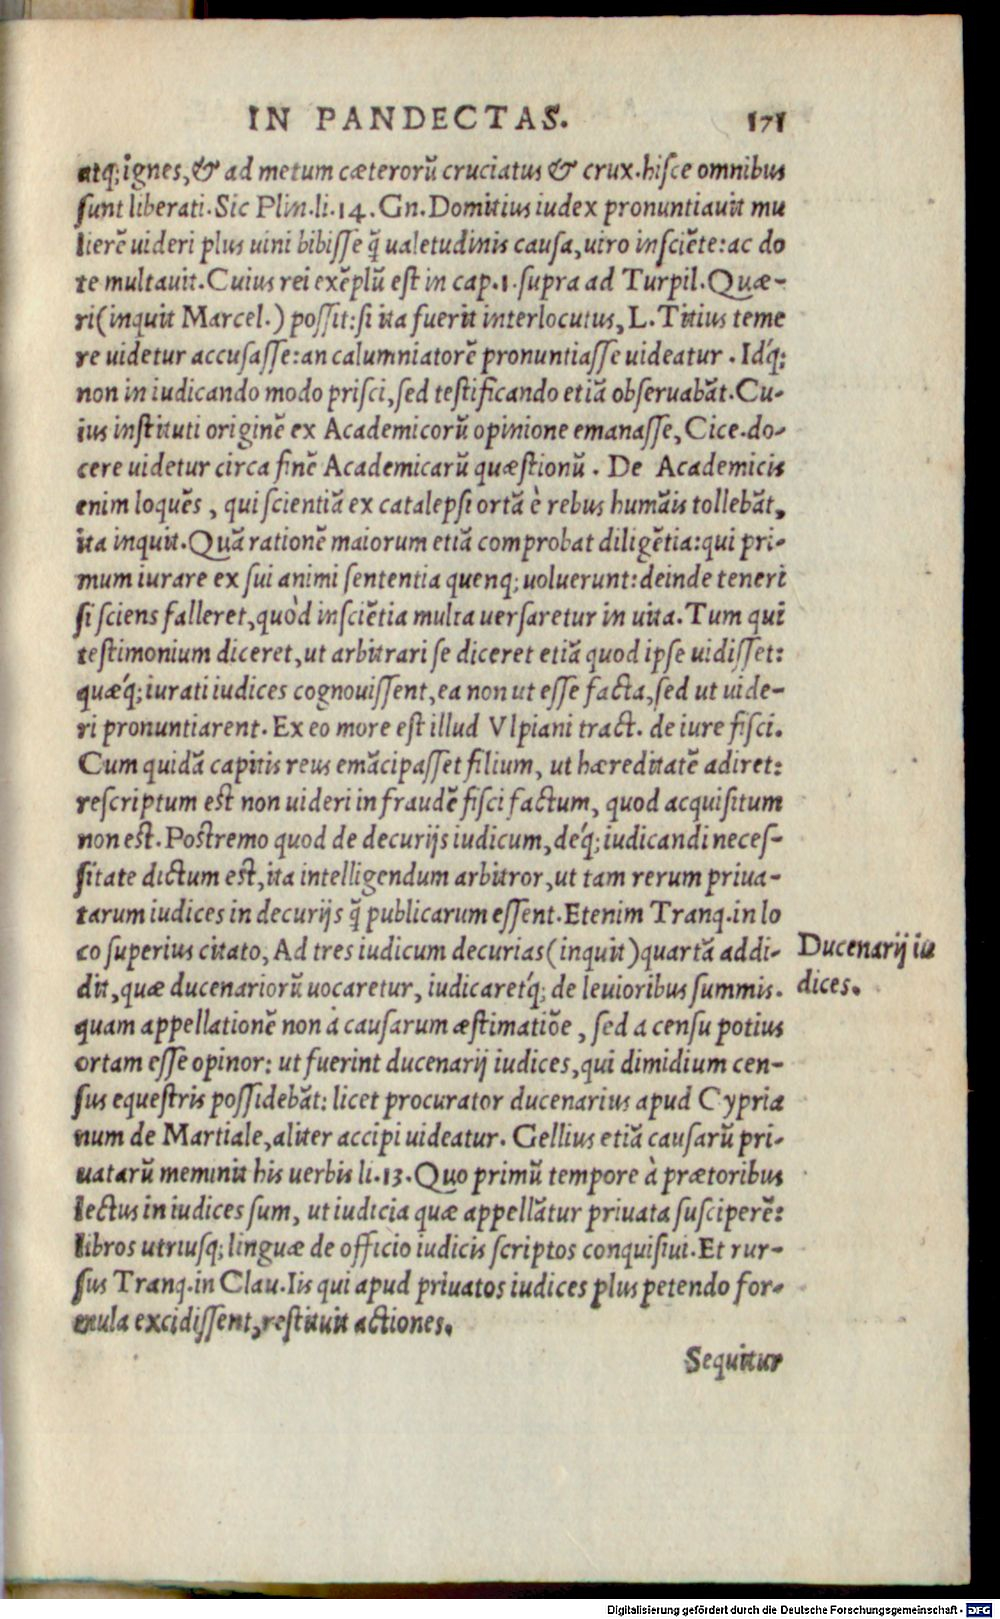 IN PANDECTAS. 171
atq;ignes,& ad metum cæterorũ cruciatus & crux.hisce omnibus
sunt liberati.Sic Plin.li.14.Gn.Domitius iudex pronuntiauit mu
lierẽ uideri plus uini bibisse q̃ ualetudinis causa,uiro insciẽte:ac do
te multauit.Cuius rei exẽplũ est in cap.1.supra ad Turpil.Quæ-
ri(inquit Marcel.) possit:si ita fuerit interlocutus, L.Titius teme
re uidetur accusasse:an calumniatorẽ pronuntiasse uideatur . Idq́;
non in iudicando modo prisci,sed testificando etiã obseruabãt.Cu-
ius instituti originẽ ex Academicorũ opinione emanasse,Cice.do-
cere uidetur circa finẽ Academicarũ quæstionũ . De Academicis
enim loquẽs , qui scientiã ex catalepsi ortã è rebus humãis tollebãt,
ita inquit.Quã rationẽ maiorum etiã comprobat diligẽtia:qui pri-
mum iurare ex sui animi sententia quenq; uoluerunt:deinde teneri
si sciens falleret,quòd insciẽtia multa uersaretur in uita.Tum qui
testimonium diceret,ut arbitrari se diceret etiã quod ipse uidisset:
quæq́;iurati iudices cognouissent,ea non ut esse facta,sed ut uide-
ri pronuntiarent. Ex eo more est illud Vlpiani tract. de iure fisci.
Cum quidã capitis reus emãcipasset filium, ut hæreditatẽ adiret:
rescriptum est non uideri in fraudẽ fisci factum, quod acquisitum
non est.Postremo quod de decurijs iudicum,deq́;iudicandi neces-
sitate dictum est,ita intelligendum arbitror,ut tam rerum priua-
tarum iudices in decurijs q̃ publicarum essent.Etenim Tranq.in lo
co superius citato, Ad tres iudicum decurias(inquit)quartã addi-
dit,quæ ducenariorũ uocaretur, iudicaretq́; de leuioribus summis.
quam appellationẽ non à causarum æstimatiõe , sed a censu potius
ortam esse opinor: ut fuerint ducenarij iudices,qui dimidium cen-
sus equestris possidebãt: licet procurator ducenarius apud Cypria
num de Martiale,aliter accipi uideatur. Gellius etiã causarũ pri-
uatarũ meminit his uerbis li.13.Quo primũ tempore à prætoribus
lectus in iudices sum, ut iudicia quæ appellãtur priuata susciperẽ:
libros utriusq; linguæ de officio iudicis scriptos conquisiui.Et rur-
sus Tranq.in Clau.Iis qui apud priuatos iudices plus petendo for-
mula excidissent,restituit actiones.
Sequitur
Ducenarij iu
dices.
Digitalisierung gefördert durch die Deutsche Forschungsgemeinschaft - DFG